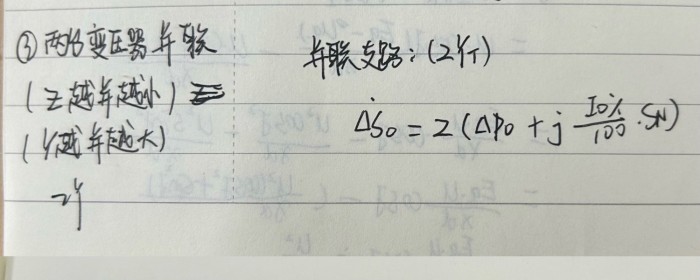 ③ 两台变压器并联
(Z越并越小)
(Y越并越大)
2Y
并联支路:(2YT)
ΔṠ₀ = 2(ΔP₀ + j I₀%/100 · SN)